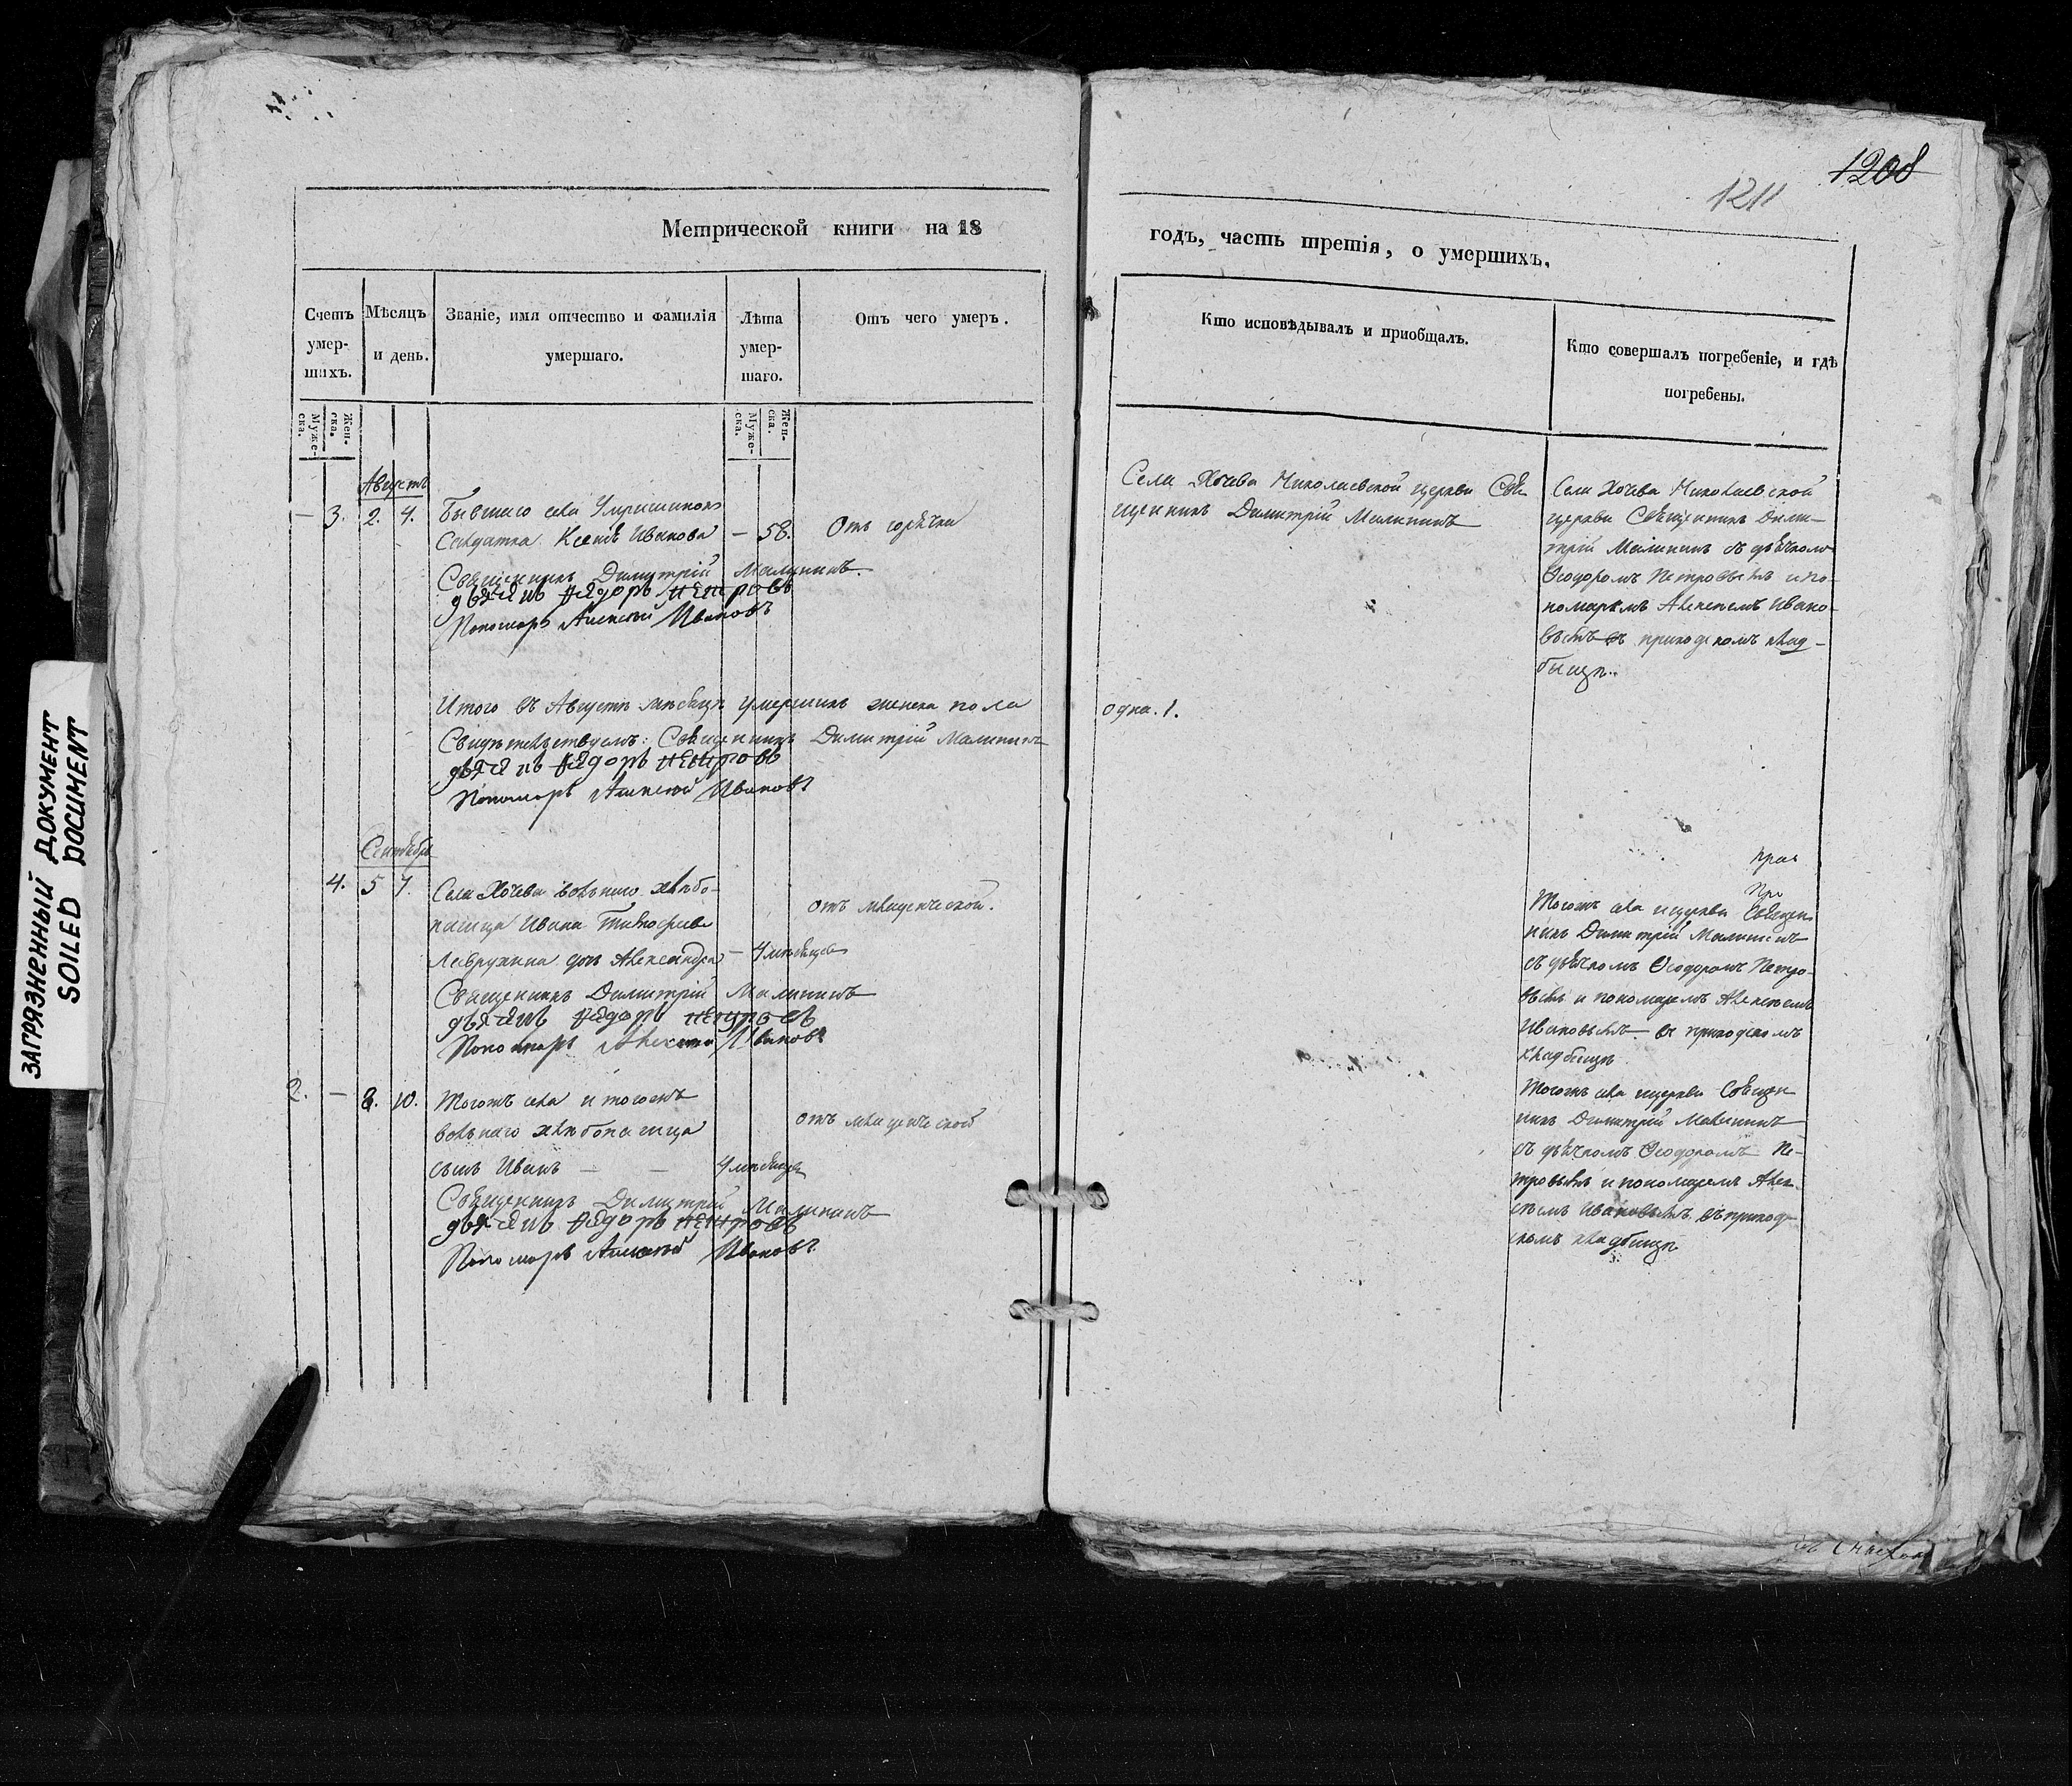 1208
1211
Метрической книги на 18
годъ, часть третія, о умершихъ.
Счетъ умер-шихъ.
Мѣсяцъ и день.
Званіе, имя отчество и фамилія умершаго.
Лѣта умер-шаго.
Отъ чего умеръ.
Кто исповѣдывалъ и пріобщалъ.
Кто совершалъ погребеніе, и гдѣ погребены.
Муже-ска.
Жен-ска.
Муже-ска.
Жен-ска.
Августъ
— 3. 2. 4.
Бывшаго села
Солдатка Ксенія Иванова — 58. Отъ горячки
Священникъ Димитрій Малининъ.
дьячекъ Ѳедоръ Петровъ
Пономарь Алексѣй Ивановъ
Села Хочева Николаевской церкви Свя
щенникъ Димитрій Малининъ
Села Хочева Николаевской
церкви Священникъ Дими-
трій Малининъ съ дьячкомъ
Ѳеодоромъ Петровымъ и по-
номаремъ Алексѣемъ Ивано-
вымъ въ приходскомъ клад-
бищѣ.
Итого въ Августѣ мѣсяцѣ умершихъ женска пола
одна. 1.
Свидѣтельствуемъ: Священникъ Димитрій Малининъ
дьячекъ Ѳедоръ Петровъ
Пономарь Алексѣй Ивановъ
Сентябрь
4. 5 7.
Села Хочева вольнаго хлѣбо-
пашца Ивана Тимофѣева
дочь Александра — 4 мѣсяца
отъ младенческой.
Священникъ Димитрій Малининъ
дьячекъ Ѳедоръ Петровъ
Пономарь Алексѣй Ивановъ
Тогожъ села и церкви Священ
никъ Димитрій Малининъ
съ дьячкомъ Ѳеодоромъ Петро-
вымъ и пономаремъ Алексѣемъ
Ивановымъ въ приходскомъ
кладбищѣ
2. — 8. 10.
Тогожъ села и тогожъ
вольнаго хлѣбопашца
сынъ Иванъ — — 4 мѣсяца
отъ младенческой
Священникъ Димитрій Малининъ
дьячекъ Ѳедоръ Петровъ
Пономарь Алексѣй Ивановъ
Тогожъ села и церкви Священ
никъ Димитрій Малининъ
съ дьячкомъ Ѳеодоромъ Пе-
тровымъ и пономаремъ Алек
сѣемъ Ивановымъ въ приход
скомъ кладбищѣ
ЗАГРЯЗНЕННЫЙ ДОКУМЕНТ
SOILED DOCUMENT